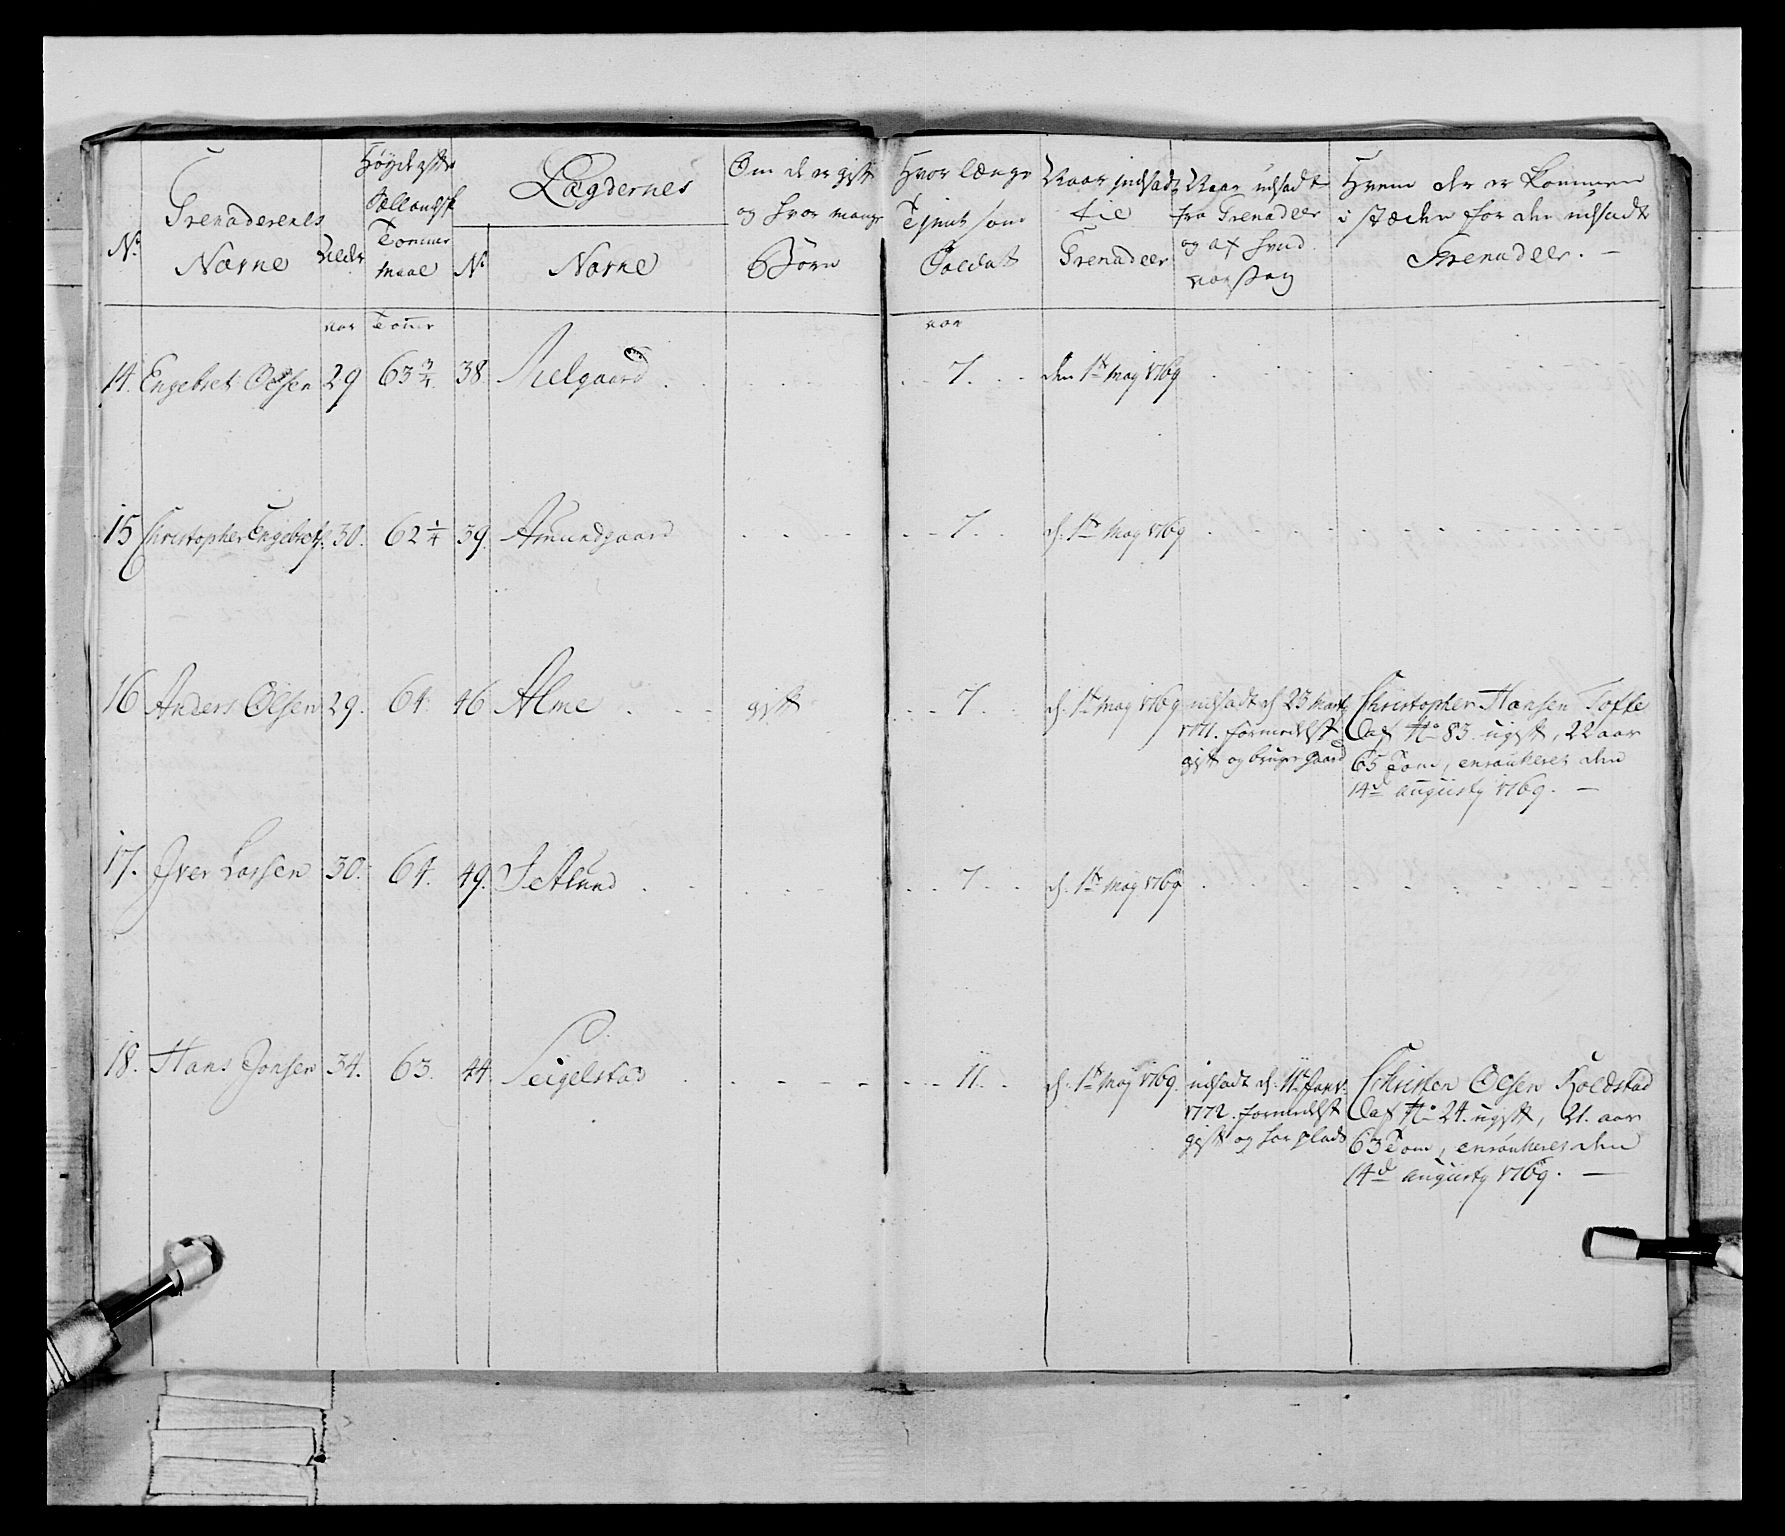 No.
Grenaderenes
Navne
Alder
Høyde efter
Siellandsk
Tomme
maal
Lægdernes
No.
Navne
Om de er gift
og hvor mange
Børn
Hvor længe
Tjent som
Soldat
Naar indsadt
til
Grenadeer
Naar udsadt
fra Grenadeer
og af hvad
aarsag
Hvem der er kommen
i stæden for den udsadte
Grenadeer. —
aar Tomr aar
14. Engebret Olsen 29 63 3/4. 38. Melgaard . 7. den 1te May 1769
15 Christopher Engebretß. 30. 62 1/4 39. Amundgaard 7. d. 1te May 1769
16 Anders Olsen 29. 64. 46. Alme gift 7. d. 1te May 1769 udsadt d 23 Marty
1771. formedelst
gift og bruger gaard
Christopher Hansen Tofte
af No 83. ugift, 22 aar
65 Tom, enroulleret den
14de augusty 1769. —
17. Iver Larsen 30. 64. 49. Setlund 7. d. 1te May 1769
18. Hans Jonsen 34. 63. 44. Seigelstad 11. d. 1te May 1769. udsadt d. 11te Janr.
1772. formedelst
gift og har plads
Christen Olsen Koldstad
af No 24. ugift, 21. aar
63 Tom, enroulleret den
14de augusty 1769. —